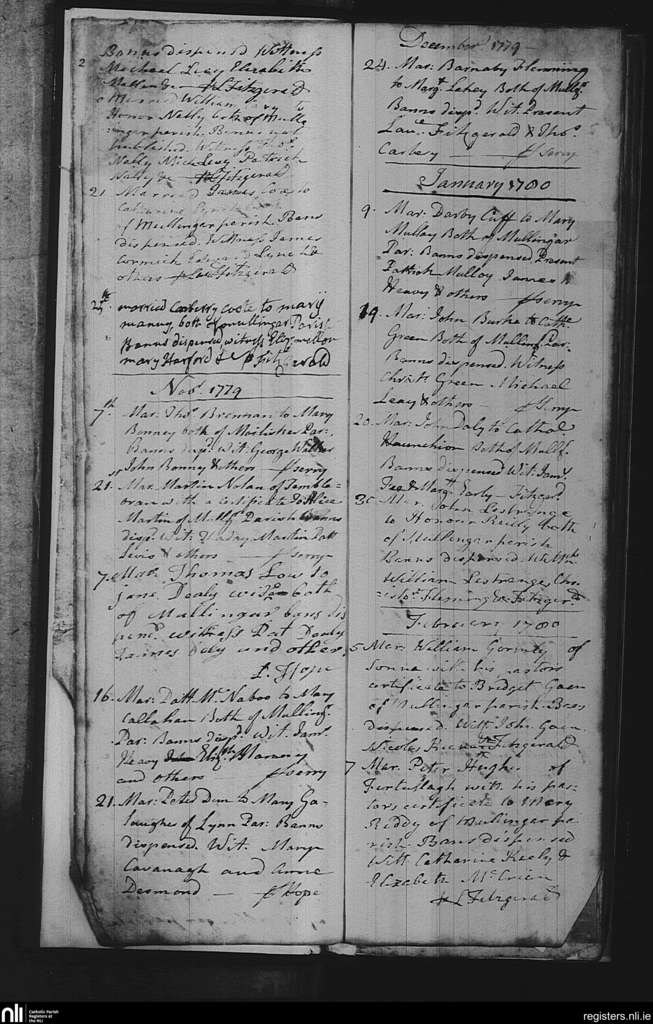 2
Banns dispensd Wittness
Michael Leay Elizabeth
Fitzgerald
Married William
Honor Nally both of Mullin
-gar parish Banns
published. Witness Thos.
Nally Mich. Leay Patrick
Nally &c Fitzgerald
21 Married James to
Catharine
of Mullingar parish Bans
dispensed. Wittness James
Cormick Edward Lyne &
others Lau. Fitzgerald
married Carberry Coole to mary
both of mullingar Parish
Banns dispensed witness
mary Harford & Fitz Gerald
Novr. 1779
7th. Mar. Thos. Brennan to Mary
Bonney both of Par.
Banns dispd. Wit. George
John Bonney & others
21. Mar. Martin Nolan of Temple
oran with a certificate to Alice
Martin of Mullr. Parish Banns
dispd. Wit. Martin Patt
Lewis & others
7. Mar. Thomas Low to
Jane Dealy both
of Mullingar bans dis
pend. witness Pat Dealy
James Daly and others
Hope
16. Mar. Patt Mc. Naboo to Mary
Callahan Both of Mullingr.
Par. Banns dispd. Wit. Jams.
Heavy Elizth.
and others
21. Mar. Peter Dun to Mary Ga-
laugher of Lynn Par. Banns
dispensed Wit. Margt.
Cavanagh and Anne
Desmond — Hope
December 1779
24. Mar. Barnaby Flemming
to Margt. Lahey Both of Mullr.
Banns dispd. Wit. Present
Laue. Fitzgerald & Thos.
Carbery —
January 1780
9. Mar. Darby Cuff to Mary
Mulloy Both of Mullingar
Par. Banns dispensed Present
Patrick Mulloy James
Heavy & others
19. Mar. John Burke to Cathe.
Green Both of Mulling. Par.
Banns dispensed. Witness
Christr. Green Michael
Leay & others
20. Mar. John Daly to Cathal
Both of Mullr.
Banns dispensed Wit. Jams.
& Margtt. Early — Fitzgerd.
30. Mar. John Lestrange
to Honour Reilly both
of Mullingar parish
Banns dispensed
William Lestrange Chrs.
Fleming & Fitzgerd.
February 1780
5 Mar. William Gormly of
Sonna with his pastors
certificate to Bridget Gaen
of Mullingar parish Bans
dispensed Witt. John Gaen
Nicolas Fitzgerald
7 Mar. Peter Hughs of
Fertullagh with his pas-
tors certificate to Mary
Reddy of Mullingar pa-
rish Bans dispensed
Witt Catharine Keely &
Elizabeth
L Fitzgerald
nli
Catholic Parish
Registers at
the NLI
registers.nli.ie